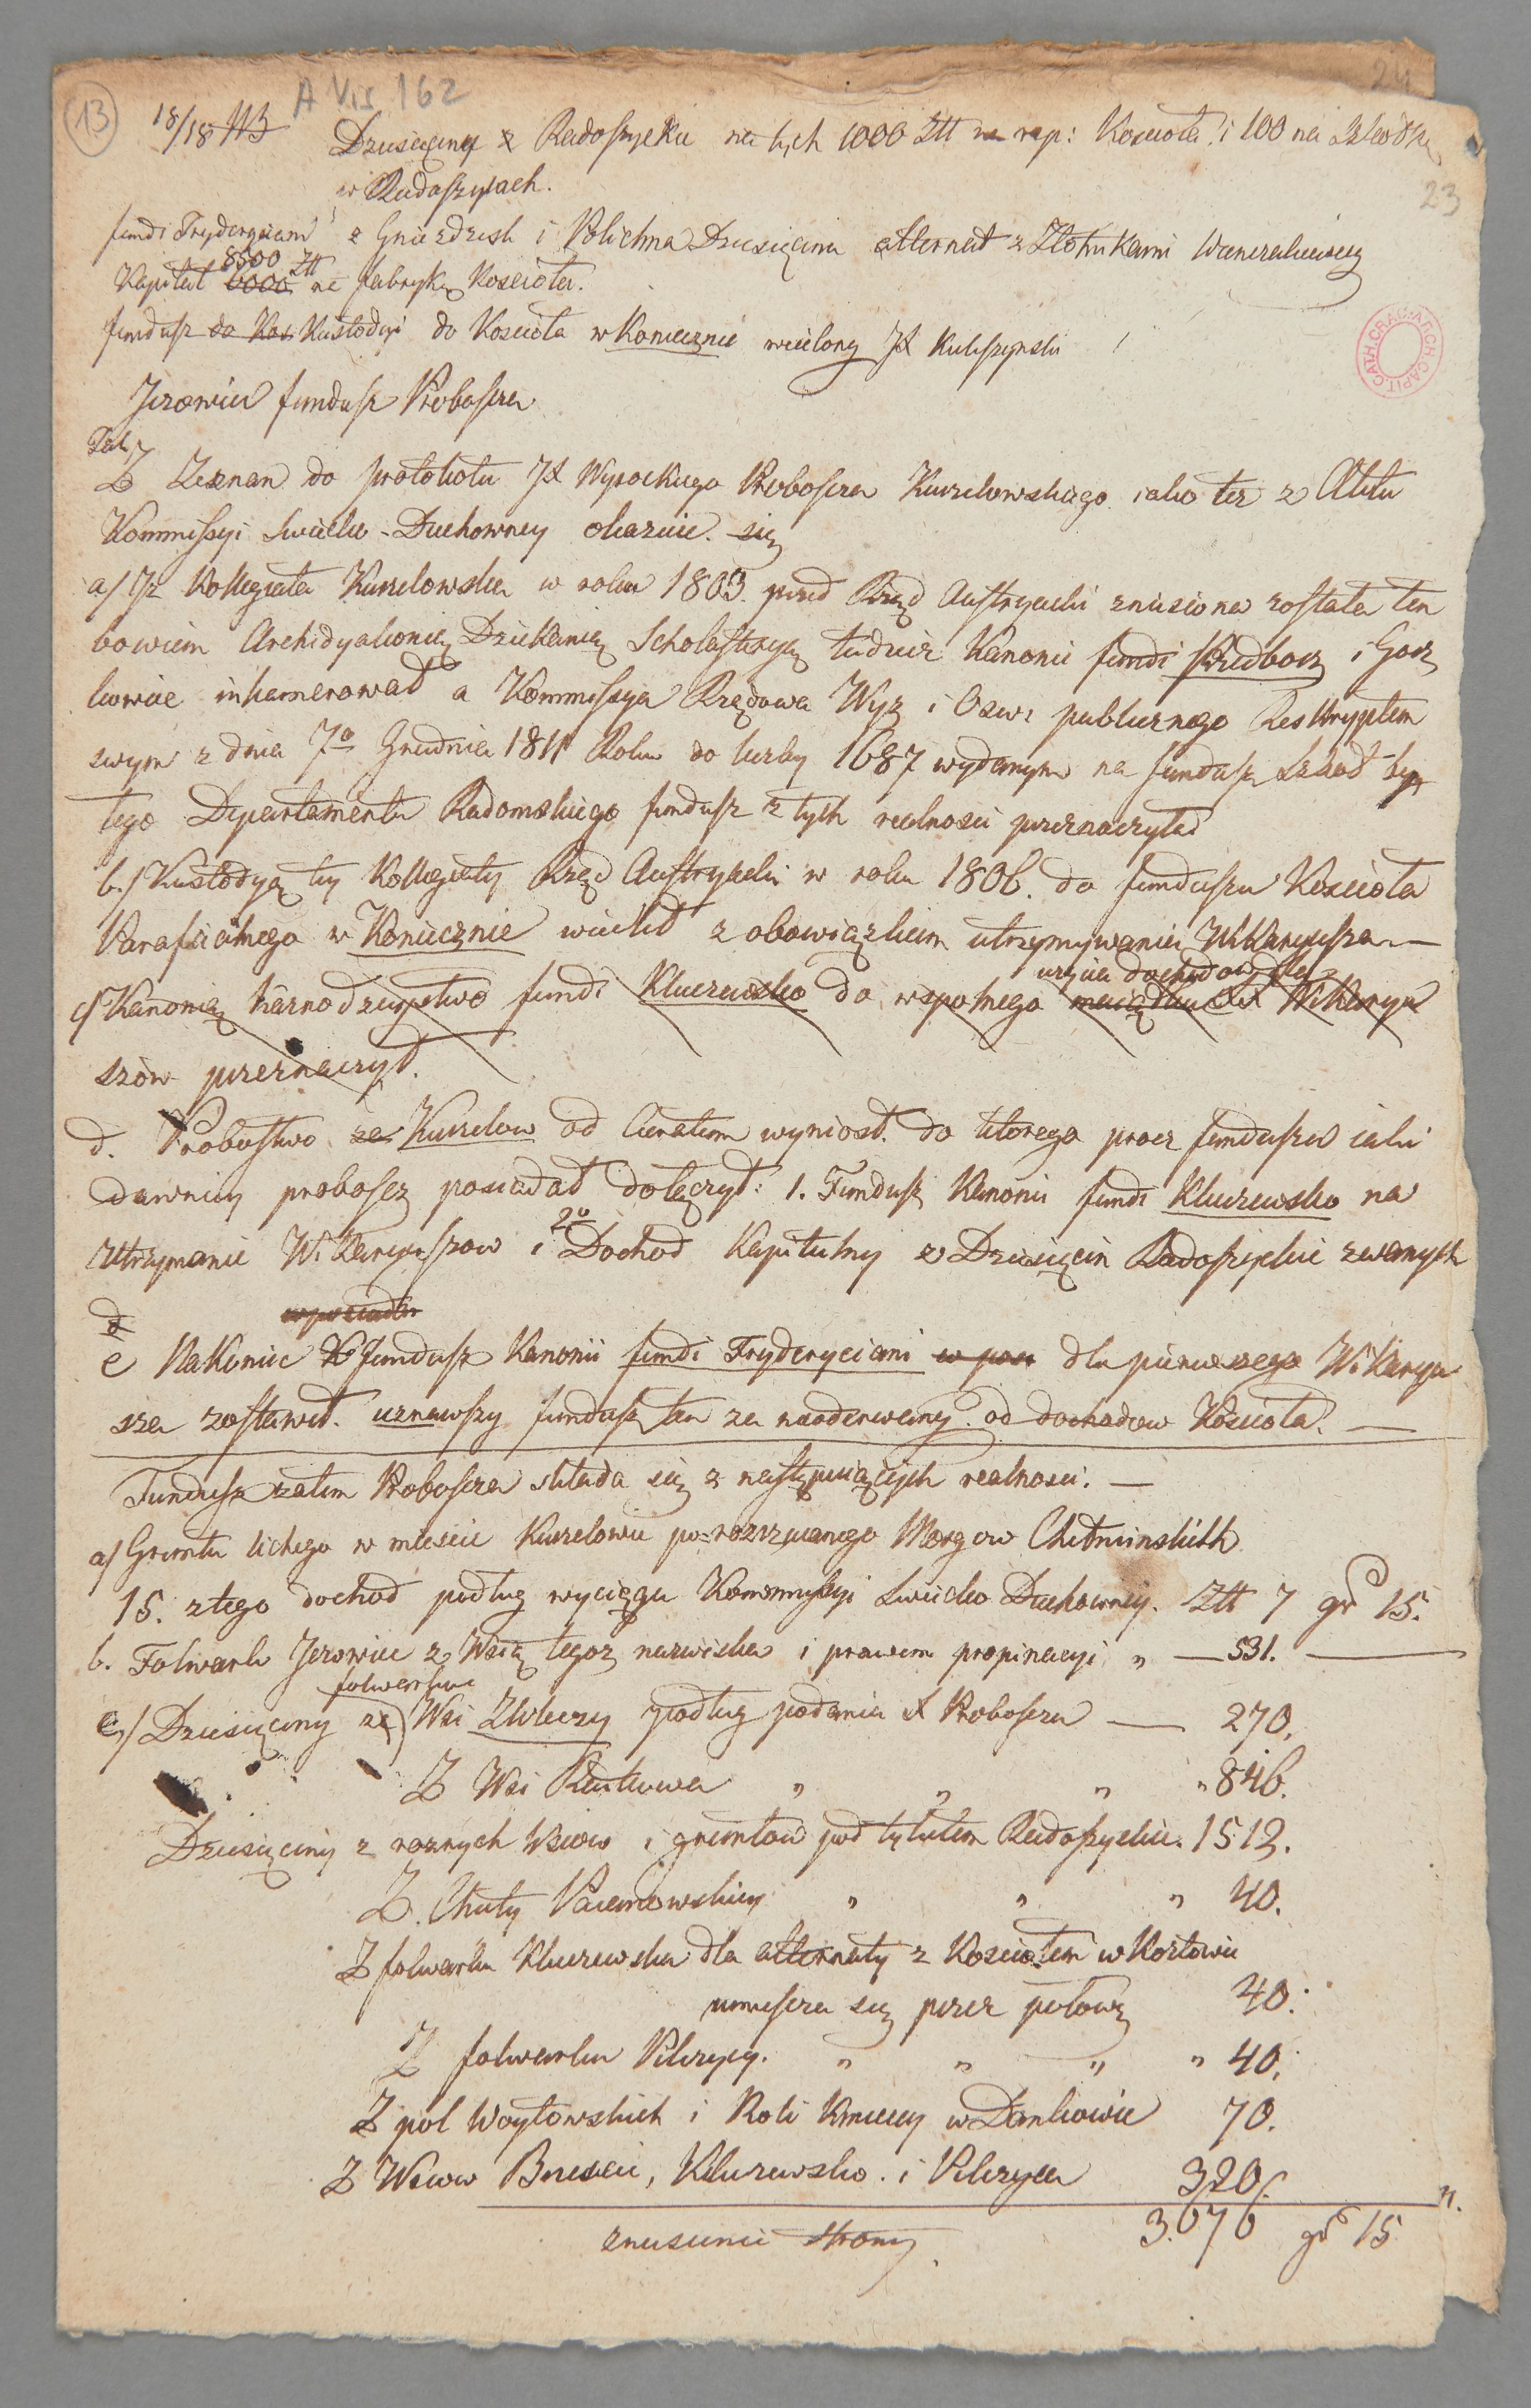 13
18/18
A Vis 162
24
23
Dziesięciny z Radoszyckie na tych 1000 Złł na rep: Kościoła i 100 na Szkółkę
w Radoszycach.
fundi Fryderyciani z Gniezdzisk i Polichna Dziesięcina alternat z Złotnikami
Kapitał 6000 8500 Złł na fabrykę Kościoła.
fundusz do Kos Kustodyi do Kościoła w Koniecznie wcielony JX Kuliszynski
ARCH. CAPIT. CATH. CRAC.
Jezowiec fundusz Proboscza
Z Zeznan do protokołu JX Wysockiego Proboscza Kurzelowskiego iako też z Aktu
Kommissyi Swiecko-Duchowney okazuie się
a/ Iż Kollegiata Kurzelowska w roku 1803. przed Rząd Austryacki zniesiona została ten
bowiem Archidyakonią Dziekanią Scholastryą tudzież Kanonii fundi Przedborz i Gorz
kowice inkamerował a Kommissya Rządowa Wyz i Oswi publicznego Reskryptem
swym z dnia 7o Grudnia 1811 Roku do liczby 1687 wydanym na fundusz Szkoł by
tego Departamentu Radomskiego fundusz z tych realnosci przeznaczyła
b./ Kustodyą tey Kollegiaty Rząd Austryacki w roku 1806. do funduszu Kościoła
Parafialnego w Koniecznie wcielił z obowiązkiem utrzymywania Wikaryusza
użycia dochodow dla
c/ Kanonią Kaznodzieystwo fundi Kluczewsko do wspolnego maiątku Wikaryu
szow przeznaczył.
d. Probostwo za Kurzelow od Curatum wyniosł. do ktorego procz funduszu iaki
dawniey proboscz posiadał dołączył: 1. Fundusz Kanonii fundi Kluczewsko na
utrzymanie Wikaryuszow i 2o Dochod Kapitulny z Dziesięcin Radoszyckie zwanych
e Nakoniec Fundusz Kanonii fundi Fryderyciani w pos dla pierwszego Wikaryu
sza zostawił. uznawszy fundusz ten za nieoderwany od dochodow Kościoła.
Fundusz zatem Proboscza składa się z następuiących realnosci.
a/ Gruntu lichego w miescie Kurzelowie porozrzucanego Morgow Chełminskich
15. z tego dochod podług wyciągu Kommissyi Swiecko Duchowney. Złł 7 gr 15.
b. Folwark Jezowiec z Wsią tegoz nazwiska i prawem propinacyi " 531.
folwarku
c/ Dziesięciny ze Wsi Zkłeczy podług podania X Proboscza 270.
Z Wsi " " " 846.
Dziesięciny z roznych Wsiow i gruntow pod tytułem Radoszyckie. 1512.
Z. Chuty " " " 40.
Z folwarku Kluczewska dla alternaty z Kosciołem w Kozłowie
umieszcza się przez połowę 40.
Z folwarku Pilczycy. " " " " 40.
Z pol Woytowskich i Roli Kmiecey w Dankowie 70.
Z Wsiow Brzescie, Kluczewsko. i Pilczyca 320.
3.676 gr 15
zniesienie strony